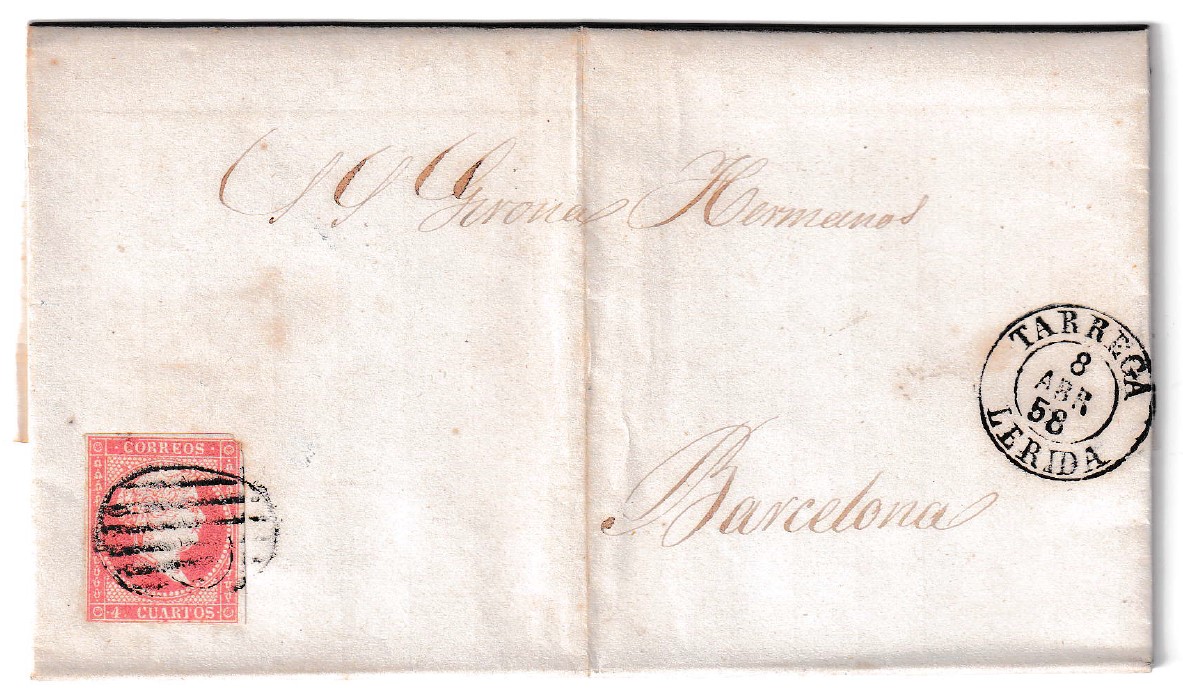 S S Girona Hermanos
TARREGA
8
ABR
58
LERIDA
Barcelona
CORREOS
4 CUARTOS